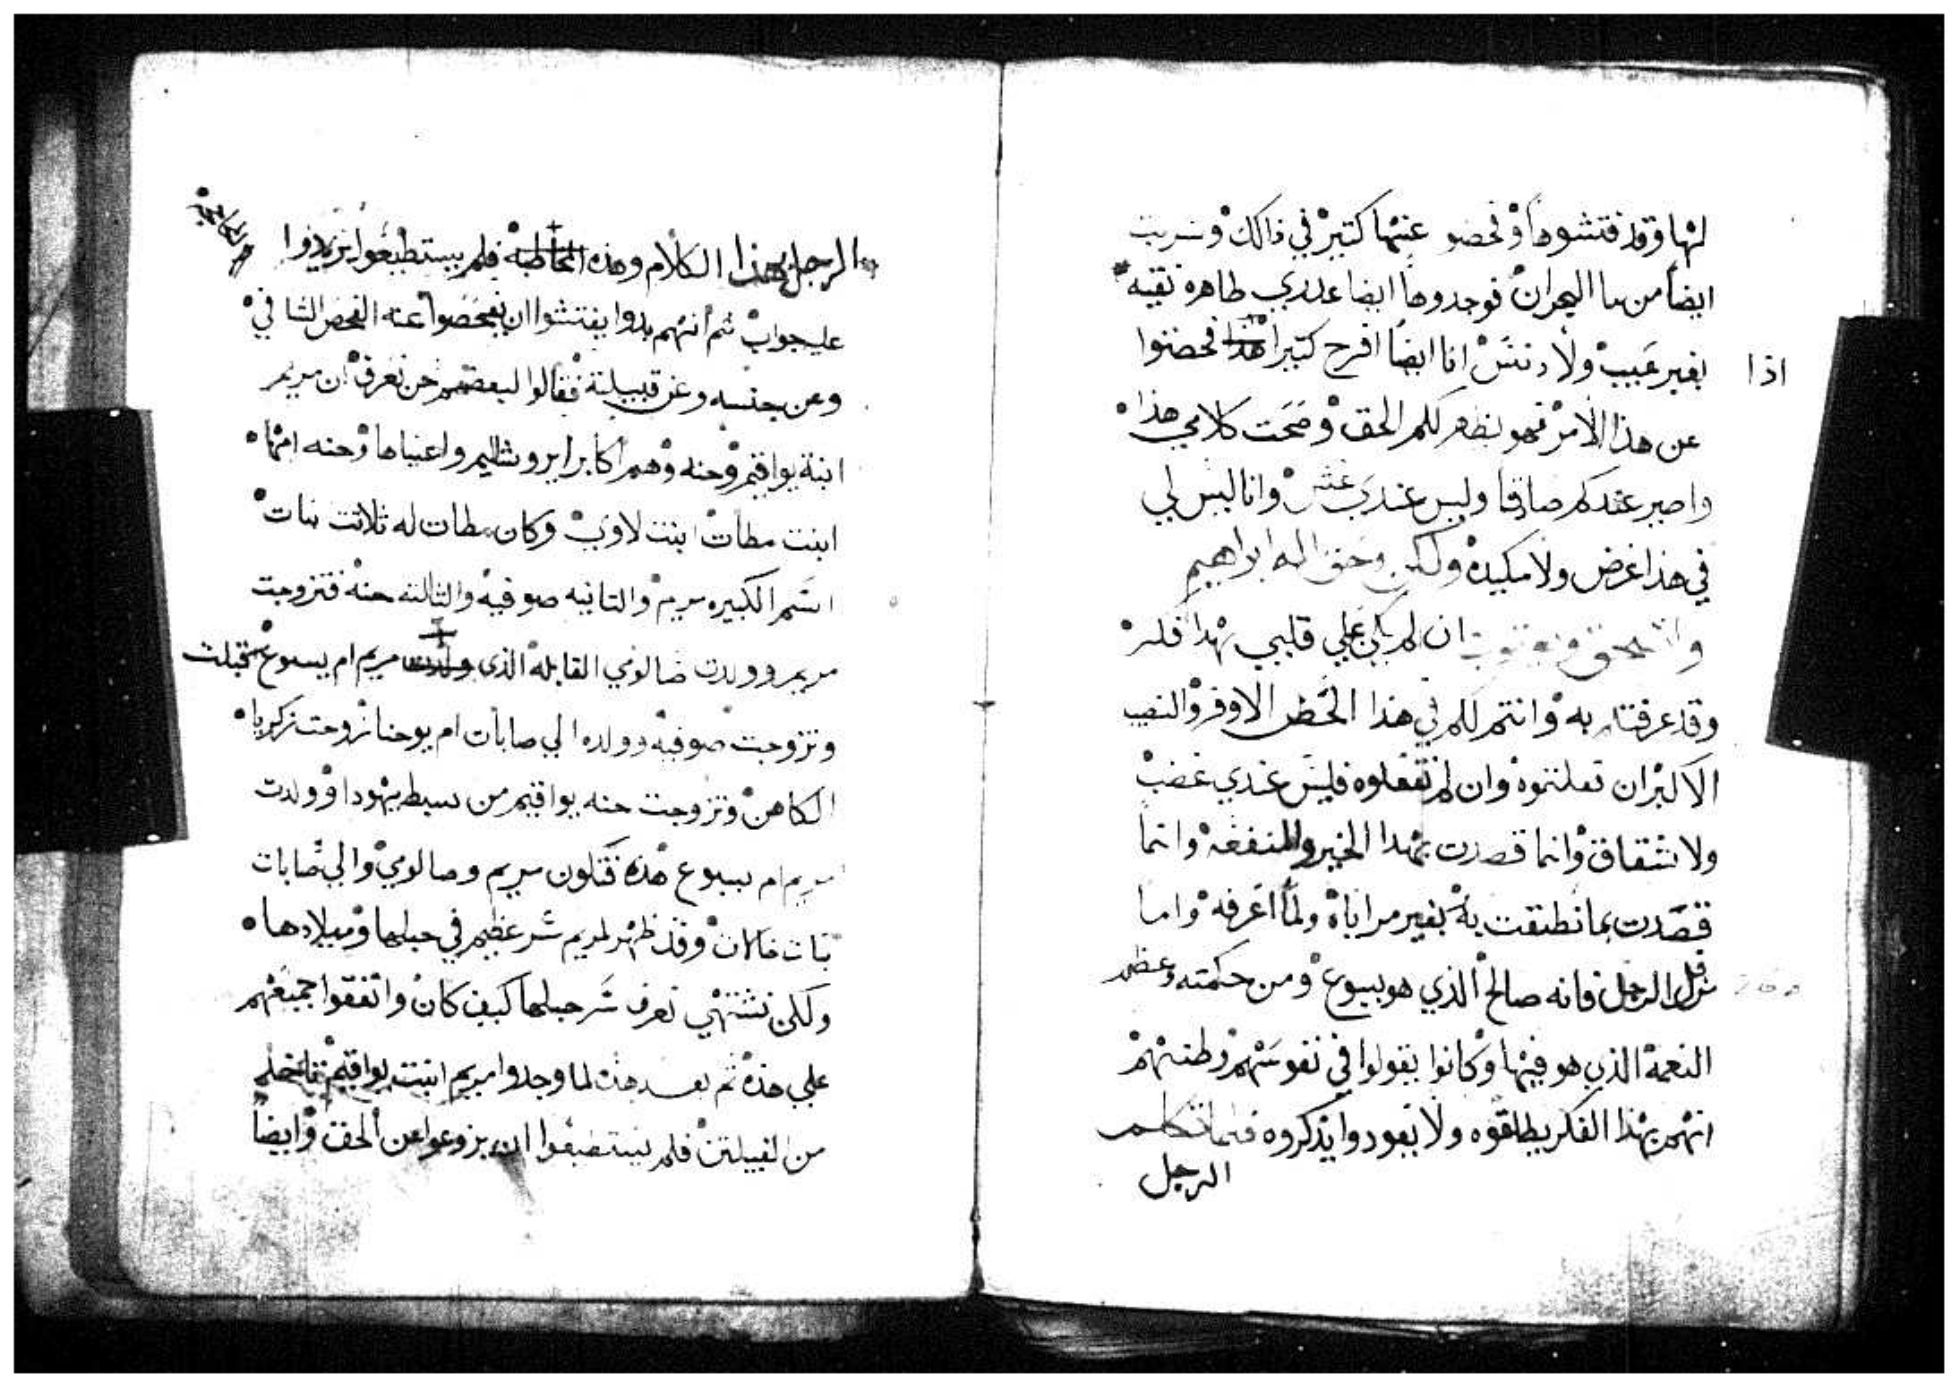 لها وقد فتشوها وفحضو عنها كتير في ذالك وشربت
ايضاً من ما البحران فوجدوها ايضا عدري طاهره نقيه
بغير عيب ولا دنس انا ايضاً افرح كتيرا هذا فحضوا
اذا
عن هذا الامر فهو يظهر لكم الحق وضحت كلامي هذا
واصير عندكم صادقا وليس عندي غش وانا ليس لي
في هذا غرض ولا مكيده ولكن وحق اله ابراهيم
ان لم يكن علي قلبي بهدا فكر
وقد عرفتكم به وانتم لكم في هذا الحظ الاوفر والنصيب
الاكبر ان فعلتموه وان لم تفعلوه فليس عندي غضب
ولا شقاق وانما قصدت بهدا الخير والمنفعه وانما
قصدت بما نطقت به بغير مراياه ولما اعرفه واما
الرجل فانه صالح الذي هو يسوع ومن حكمته وعظم
النعمة الذي هو فيها وكانوا يقولوا في نفوسهم وظنهم
انهم بهذا الفكر يطلقوه ولا يعودوا يذكروه فلما تكلم
الرجل
الرجل بهذا الكلام وهذه المخاطبه فلم يستطيعوا يزيدوا
علي جواب ثم أنهم بدوا يفتشوا ان يفحضوا عنه الفحض الشافي
وعن جنسه وعن قبيلته فقالوا لبعضهم نحن نعرف ان مريم
ابنة يواقيم وحنه وهم اكابر ايروشاليم واغنياها وحنه امها
ابنت مطات ابنت لاوي وكان مطات له ثلاتت بنات
اسم الكبيره مريم والتانيه صوفيه والثالته حنه فتزوجت
مريم وولدت صالومي القابله الذي ولدت مريم ام يسوع قبلت
وتزوجت صوفيه وولده الي صابات ام يوحنا زوجت زكريا
الكاهن وتزوجت حنه يواقيم من سبط يهودا وولدت
مريم ام يسوع هذه فتكون مريم وصالومي والي صابات
بنات خالات وقد ظهر لمريم سر عظيم في حبلها وميلادها
ولكن نشتهي نعرف سر حبلها كيف كان واتفقوا جميعهم
علي هذه ثم بعد هذه لما وجدوا مريم ابنت يواقيم
من القبيلتن فلم يستطيعوا ان يزوعوا عن الحق وايضاً